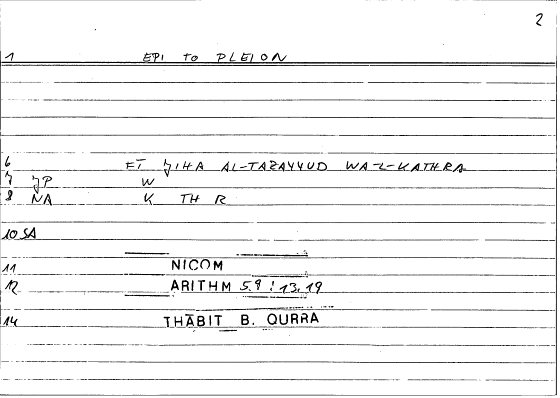 2
1 EPI TO PLEION
6 ET ʒIHA AL-TAZAYYUD WA-L-KATHRA
7 ʒP W
8 NA K TH R
10 SA
11 NICOM
12 ARITHM 5.9 : 13.19
14 THĀBIT B. QURRA